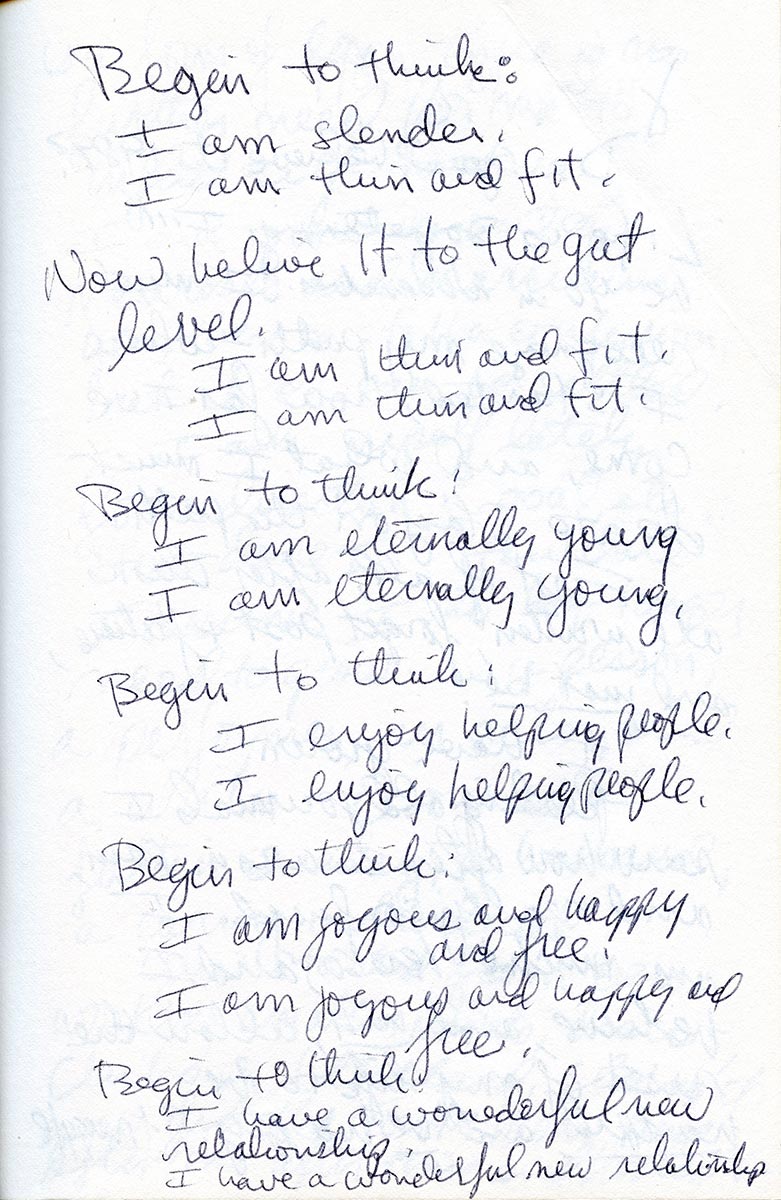 Begin to think:
I am slender.
I am thin and fit.
Now belive it to the gut
level.
I am thin and fit.
I am thin and fit.
Begin to think:
I am eternally young
I am eternally young.
Begin to think:
I enjoy helping people.
I enjoy helping people.
Begin to think:
I am joyous and happy
and free.
I am joyous and happy and
free.
Begin to think:
I have a wonederful new
relationship.
I have a wonderful new relationship